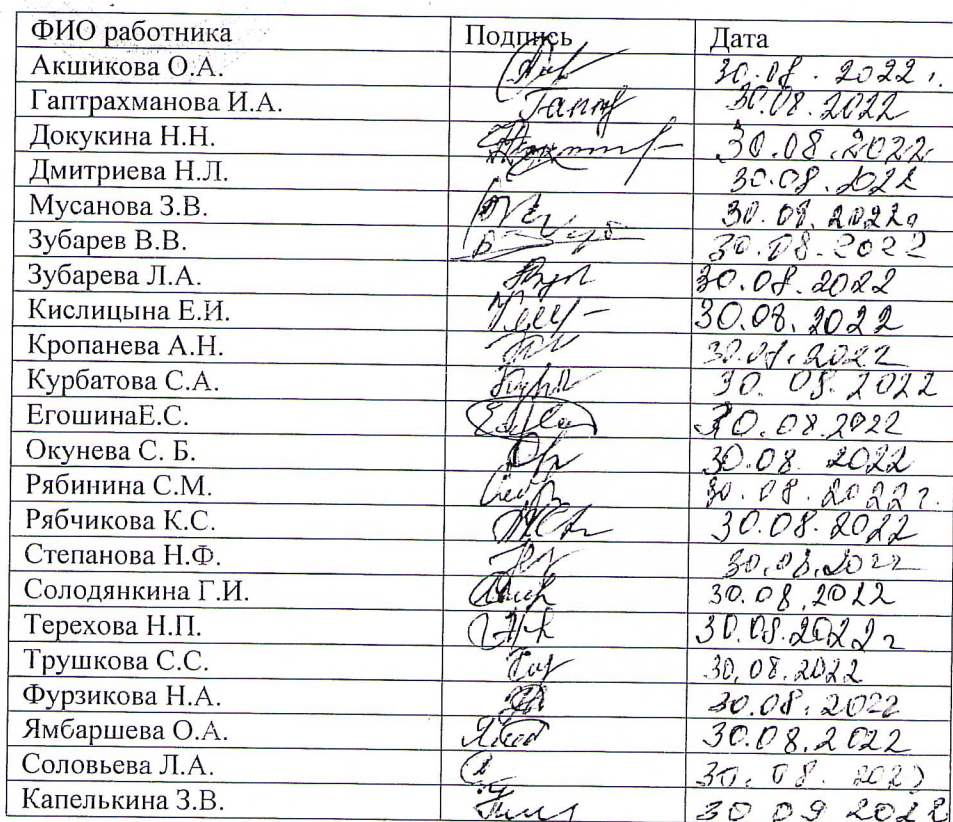 ФИО работника Подпись Дата
Акшикова О.А. 30.08.2022г.
Гаптрахманова И.А. 30.08.2022
Докукина Н.Н. 30.08.2022
Дмитриева Н.Л. 30.08.2022
Мусанова З.В. 30.08.2022г
Зубарев В.В. 30.08.2022
Зубарева Л.А. 30.08.2022
Кислицына Е.И. 30.08.2022
Кропанева А.Н. 30.08.2022
Курбатова С.А. 30.08.2022
ЕгошинаЕ.С. 30.08.2022
Окунева С. Б. 30.08.2022
Рябинина С.М. 30.08.2022г.
Рябчикова К.С. 30.08.2022
Степанова Н.Ф. 30.08.2022
Солодянкина Г.И. 30.08.2022
Терехова Н.П. 30.08.2022г
Трушкова С.С. 30.08.2022
Фурзикова Н.А. 30.08.2022
Ямбаршева О.А. 30.08.2022
Соловьева Л.А. 30.08.2022
Капелькина З.В. 30 09 2022